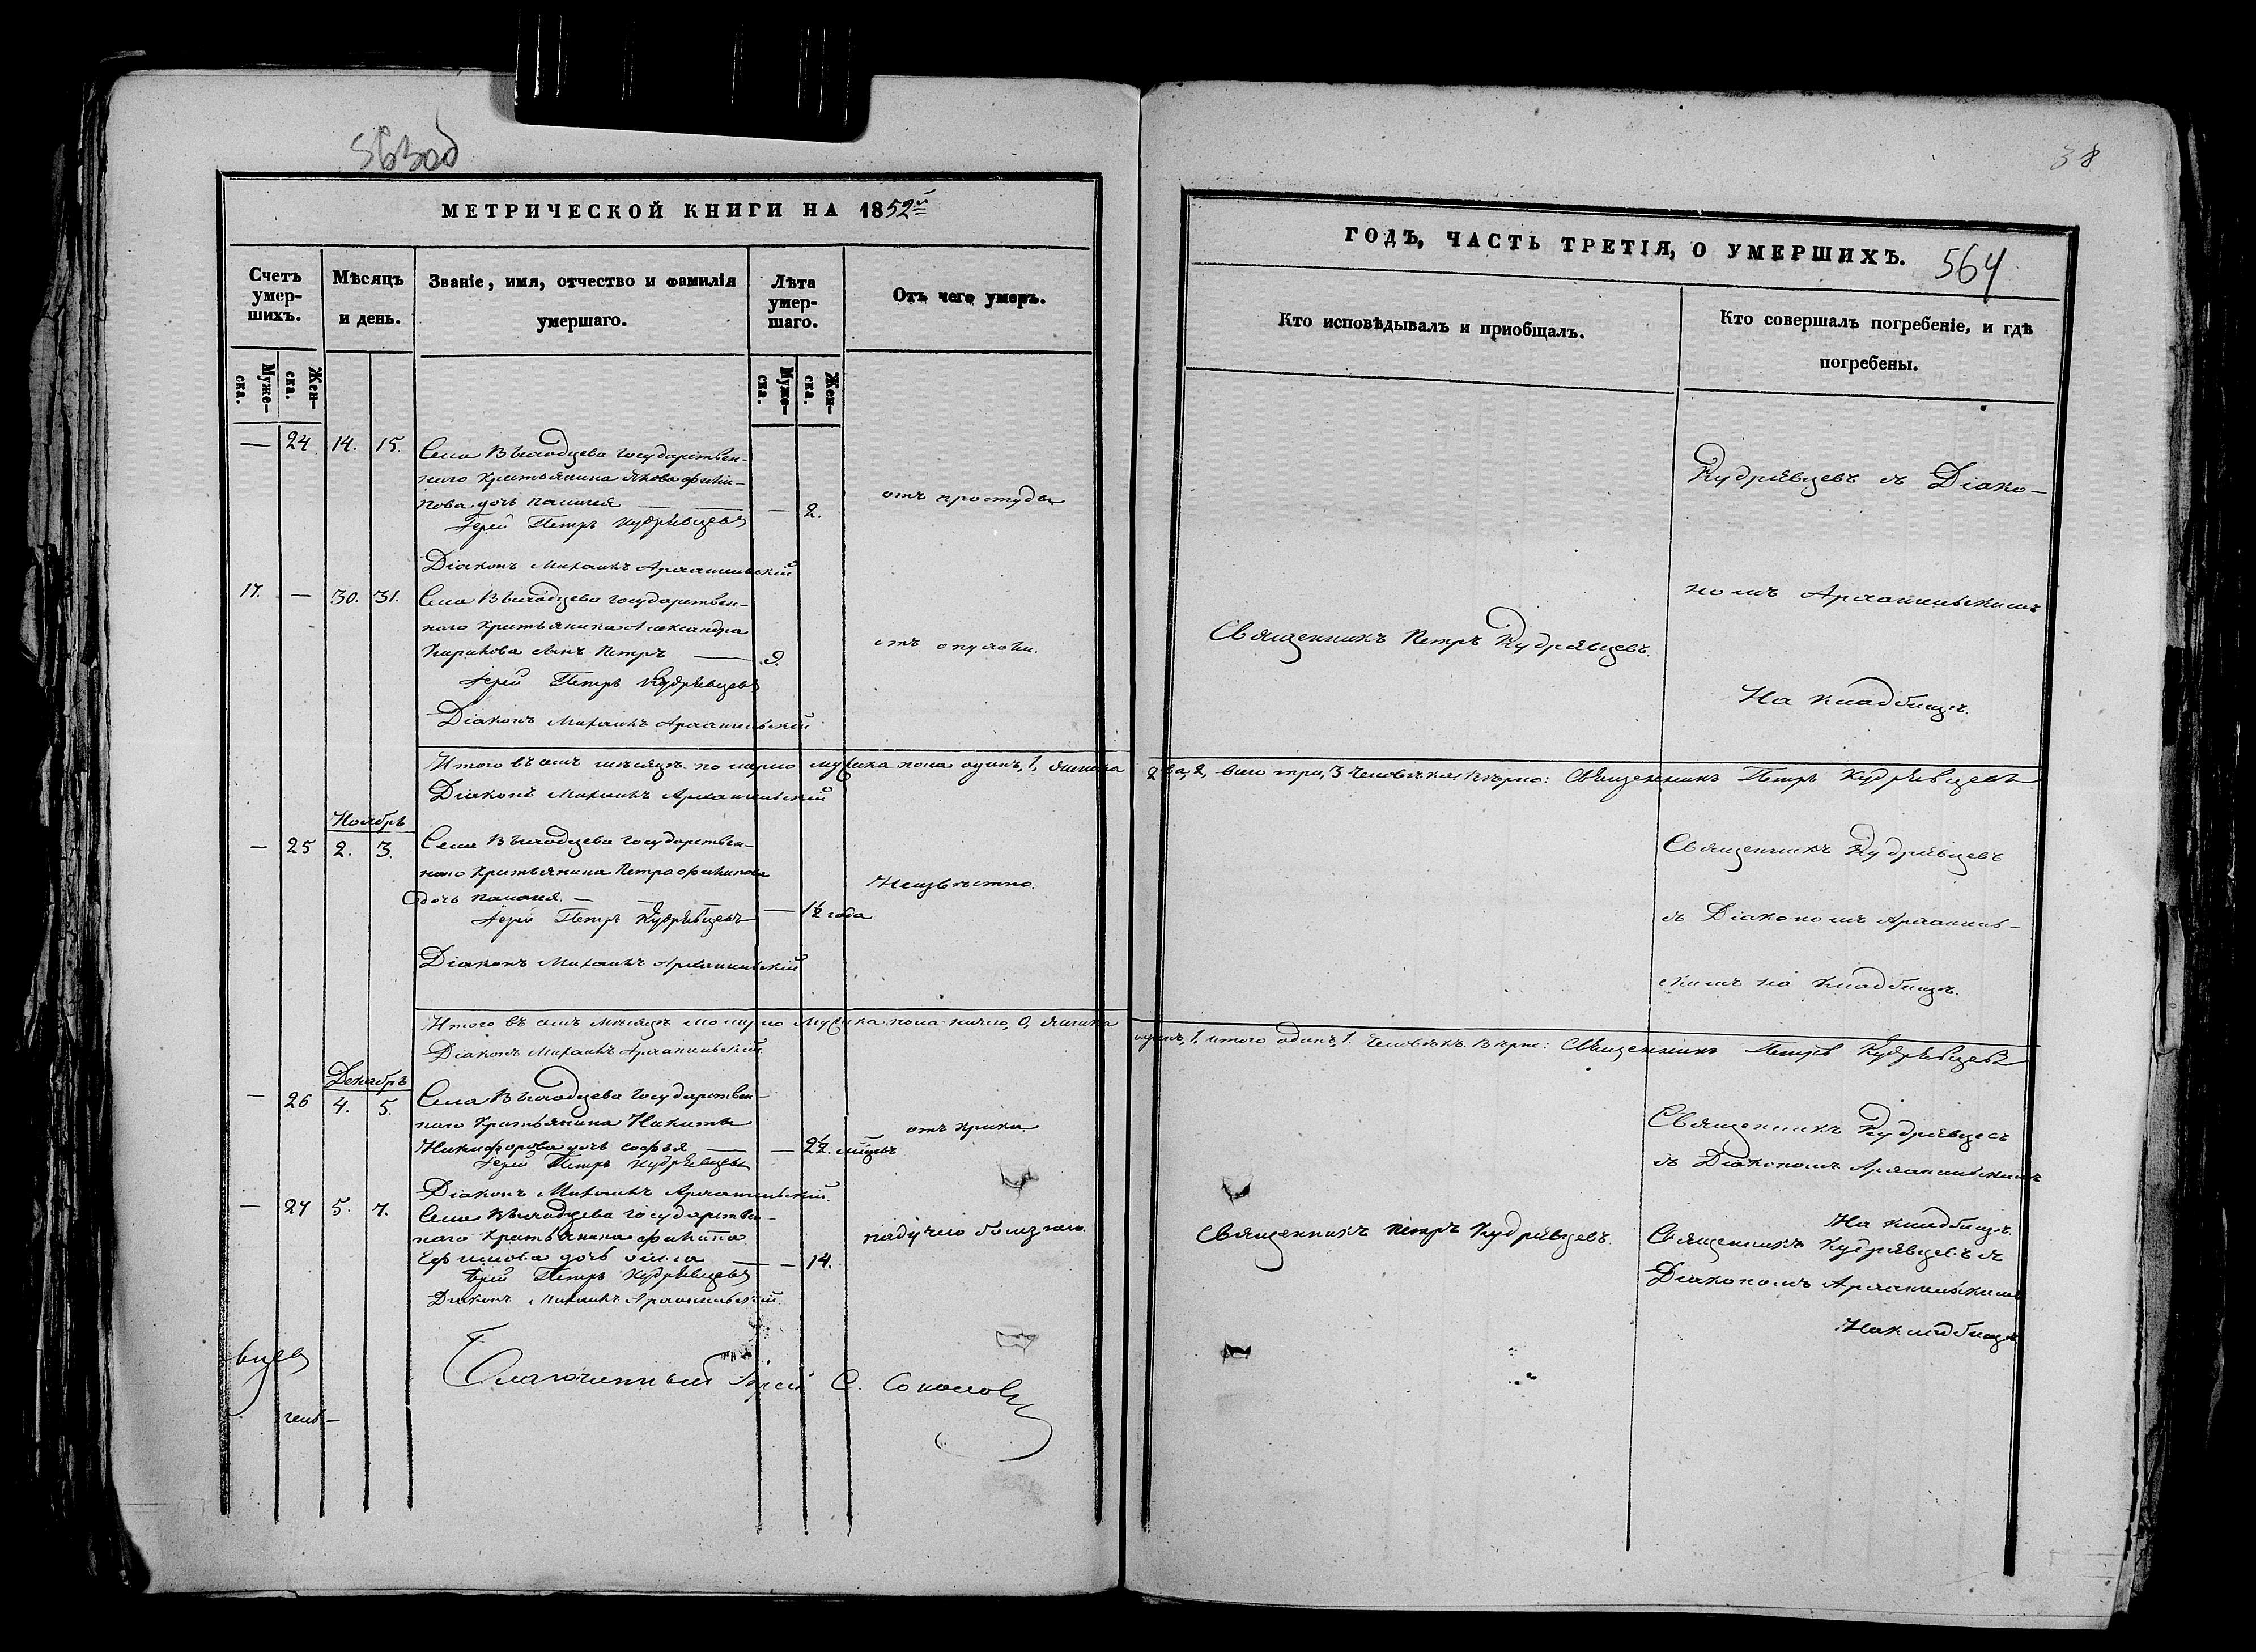 563об
38
МЕТРИЧЕСКОЙ КНИГИ НА 1852й
Счетъ умер-
шихъ.
Мѣсяцъ
и день.
Званіе, имя, отчество и фамилія
умершаго.
Лѣта
умер-
шаго.
Отъ чего умеръ.
Муже-
ска.
Жен-
ска.
Муже-
ска.
Жен-
ска.
— 24 14. 15. Села Выходцева государствен-
наго крестьянина Якова Фили-
пова дочь Палагея — — 2. отъ простуды
Іерей Петръ Кудрявцевъ
Діаконъ Михаилъ Архангельскій
17. — 30. 31. Села Выходцева государствен-
наго крестьянина Александра
Карпова сынъ Петръ — 9. отъ опухоли.
Іерей Петръ Кудрявцевъ
Діаконъ Михаилъ Архангельскій
Итого въ семъ мѣсяцѣ померло мужеска пола одинъ, 1, женска
Діаконъ Михаилъ Архангельскій
Ноябрь
— 25 2. 3. Села Выходцева государствен-
наго крестьянина Петра Филипова
дочь Палагея. — — 1½ года Неизвѣстно.
Іерей Петръ Кудрявцевъ
Діаконъ Михаилъ Архангельскій
Итого въ семъ мѣсяцѣ померло мужеска пола 0, женска
Діаконъ Михаилъ Архангельскій.
Декабрь
— 26 4. 5. Села Выходцева государствен-
наго крестьянина Никиты
Никифорова дочь Софья — — 2½ отъ крика
Іерей Петръ Кудрявцевъ
Діаконъ Михаилъ Архангельскій.
— 27 5. 7. Села Выходцева государствен-
наго крестьянина Филипа
Ефимова дочь — — 14. падучею болезнею.
Іерей Петръ Кудрявцевъ
Діаконъ Михаилъ Архангельскій.
вцевъ
Благочинный Іерей С. Соколовъ
гель—
ГОДЪ, ЧАСТЬ ТРЕТІЯ, О УМЕРШИХЪ. 564
Кто исповѣдывалъ и пріобщалъ.
Кто совершалъ погребеніе, и гдѣ
погребены.
Кудрявцевъ съ Діако-
номъ Архангельскимъ
Священникъ Петръ Кудрявцевъ.
На кладбищѣ.
два, 2, всего три, 3 человѣка. Вѣрно: Священникъ Петръ Кудрявцевъ
Священникъ Кудрявцевъ
съ Діакономъ Архангель-
скимъ на кладбищѣ.
одинъ, 1, итого одинъ, 1. Человѣкъ. Вѣрно: Священникъ Петръ Кудрявцевъ
Священникъ Кудрявцевъ
съ Діакономъ Архангельскимъ
На кладбищѣ.
Священникъ Петръ Кудрявцевъ. Священникъ Кудрявцевъ съ
Діакономъ Архангельскимъ
На кладбищѣ